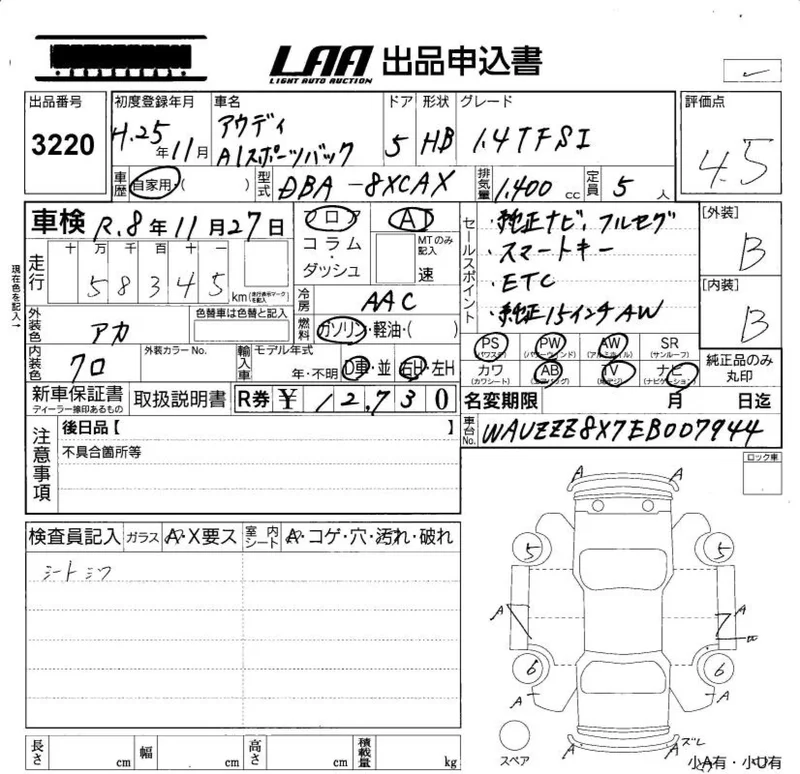 LAA 出品申込書
LIGHT AUTO AUCTION
出品番号
3220
初度登録年月
H.25年11月
車名
アウディ
A1スポーツバック
ドア
5
形状
HB
グレード
1.4TFSI
評価点
4.5
車歴
自家用・( )
型式
DBA-8XCAX
排気量
1,400 cc
定員
5人
車検
R.8年11月27日
フロア
コラム
・
ダッシュ
AT
MTのみ記入
速
セールスポイント
・純正ナビ、フルセグ
・スマートキー
・ETC
・純正15インチAW
[外装]
B
[内装]
B
現在色を記入→
走行
十 万 千 百 十 一
58345
km
(走行表示マークを記入)
冷房
AAC
外装色
アカ
色替車は色替と記入
燃料
ガソリン・軽油・( )
内装色
クロ
外装カラーNo.
輸入車
モデル年式
年・不明
D車・並
右H・左H
PS
(パワステ)
PW
(パワーウィンド)
AW
(アルミホイル)
SR
(サンルーフ)
カワ
(カワシート)
AB
(エアバック)
TV
ナビ
(ナビゲーション)
純正品のみ
丸印
新車保証書
ディーラー捺印あるもの
取扱説明書
R券 ¥ 12,730
名変期限
月 日迄
注意事項
後日品【 】
不具合箇所等
車台No.
WAUZZZ8X7EB007944
ロック車
検査員記入
ガラス
A・X要ス
室内シート
A・コゲ・穴・汚れ・破れ
シートシワ
A
A
5
5
A
A
6
6
A
A
スペア
A
A
ズレ
小A有・小U有
長さ cm
幅 cm
高さ cm
積載量 kg